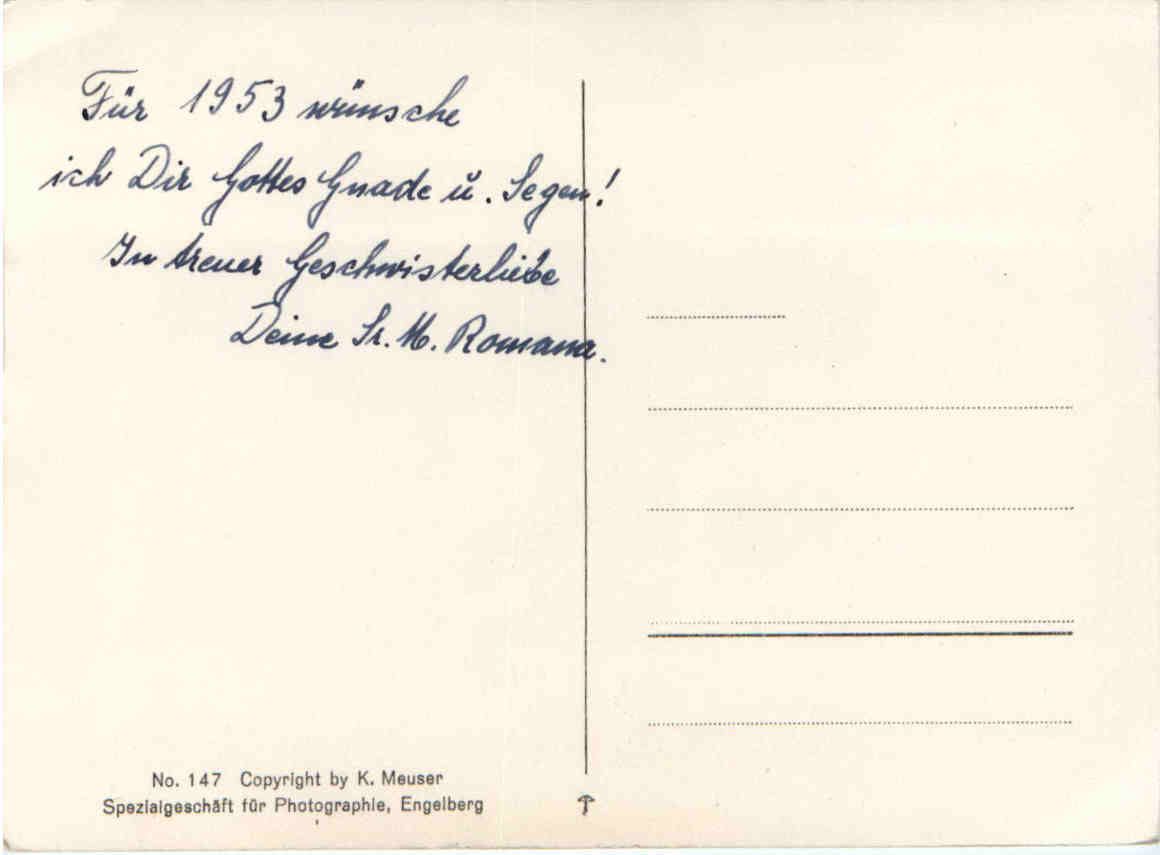 Für 1953 wünsche
ich Dir Gottes Gnade u. Segen!
In treuer Geschwisterliebe
Deine Sr. M. Romana.
No. 147 Copyright by K. Meuser
Spezialgeschäft für Photographie, Engelberg